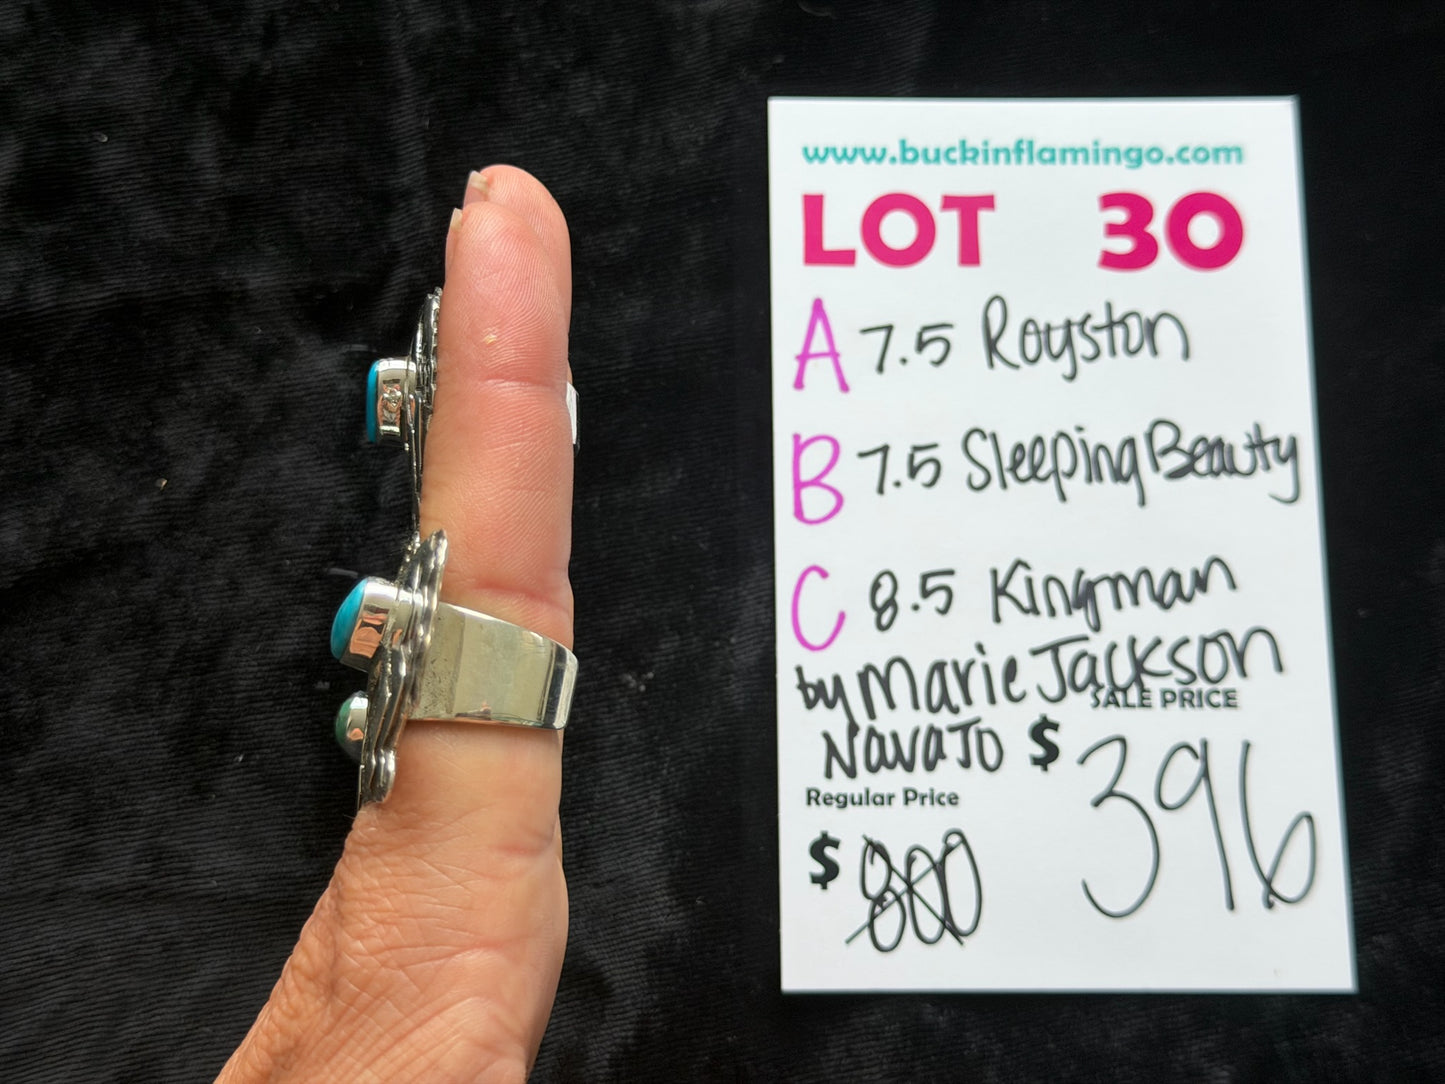 www.buckinflamingo.com
LOT 30
A 7.5 Royston
B 7.5 Sleeping Beauty
C 8.5 Kingman
by Marie Jackson
SALE PRICE
Navajo $ 396
Regular Price
$ 800